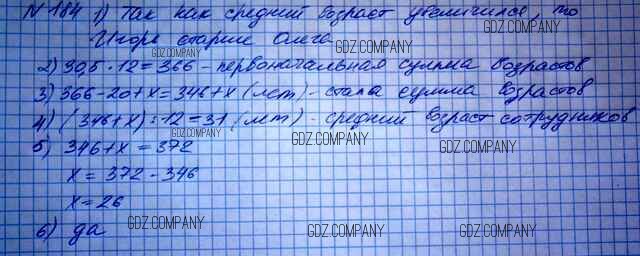 N 184 1) Так как средний возраст увеличился, то
Игорь старше Олега
GDZ.COMPANY GDZ.COMPANY
2) 30,5 · 12 = 366 - первоначальная сумма возрастов
GDZ.COMPANY
3) 366 - 20 + x = 346 + x (лет) - стала сумма возрастов
GDZ.COMPANY
4) (346 + x) : 12 = 31 (лет) - средний возраст сотрудников
GDZ.COMPANY GDZ.COMPANY
5) 346 + x = 372
GDZ.COMPANY
x = 372 - 346
x = 26
6) да
GDZ.COMPANY GDZ.COMPANY GDZ.COMPANY